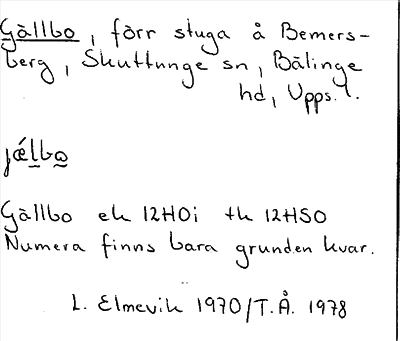 Gällbo, förr stuga å Bemers-
berg, Skuttunge sn, Bälinge
hd, Upps. l.
jǽlbo
Gällbo ek 12H0i tk 12HSO
Numera finns bara grunden kvar.
L. Elmevik 1970/T.Å. 1978